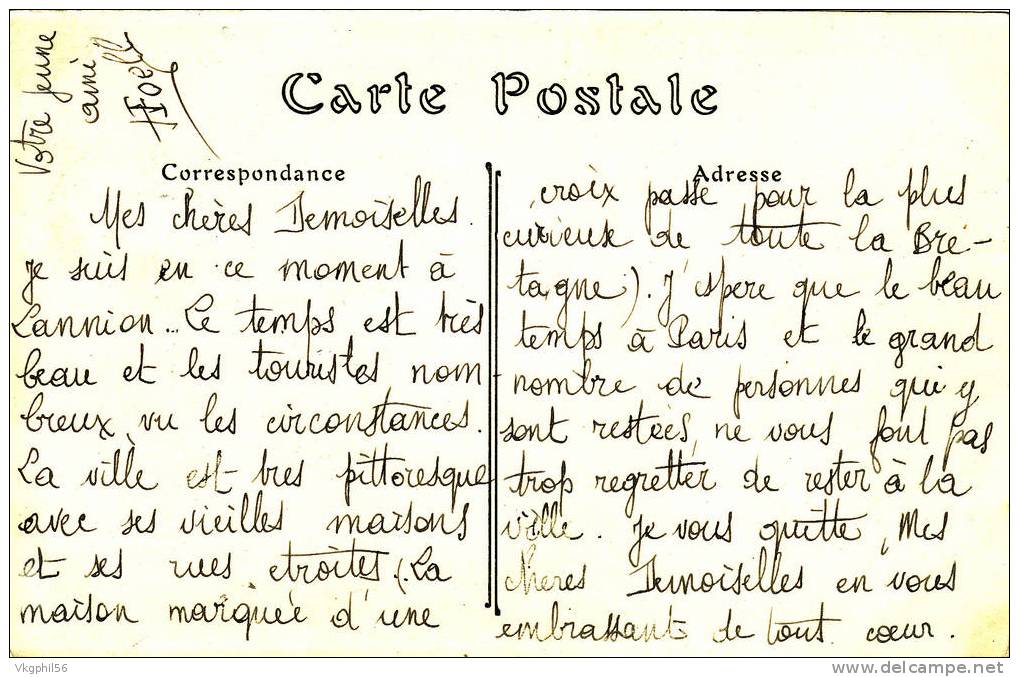 Carte Postale
Correspondance
Mes chères Demoiselles.
Je suis en ce moment à
Lannion... Le temps est très
beau et les touristes nom-
breux, vu les circonstances.
La ville est très pittoresque
avec ses vieilles maisons
et ses rues étroites. (La
maison marquée d'une
Adresse
croix passe pour la plus
curieuse de toute la Bre-
tagne). J'espere que le beau
temps à Paris et le grand
nombre de personnes qui y
sont restées, ne vous font pas
trop regretter de rester à la
ville. Je vous quitte, Mes
chères Demoiselles en vous
embrassant de tout cœur.
Votre jeune
ami
Vkgphil56
delcampe.net